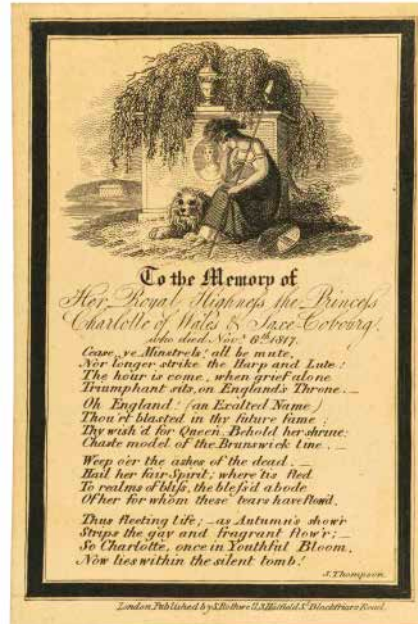 To the Memory of
Her Royal Highness the Princess
Charlotte of Wales & Saxe-Cobourg,
who died Novr. 6th 1817.
Cease, ye Minstrels! all be mute,
Nor longer strike the Harp and Lute!
The hour is come, when grief alone
Triumphant sits, on England's Throne._
Oh England! (an Exalted Name)
Thou'rt blasted in thy future fame;
Thy wish'd for Queen, Behold her shrine:
Chaste model of the Brunswick line._
Weep o'er the ashes of the dead._
Hail her fair Spirit; where 'tis fled
To realms of bliss, the bless'd abode
Of her for whom these tears have flow'd.
Thus fleeting life;_as Autumn's show'r
Strips the gay and fragrant flow'r;_
So Charlotte, once in Youthful Bloom,
Now lies within the silent tomb!
J. Thompson.
London, Published by S. Rothwell, 3, Hatfield St. Blackfriars Road.